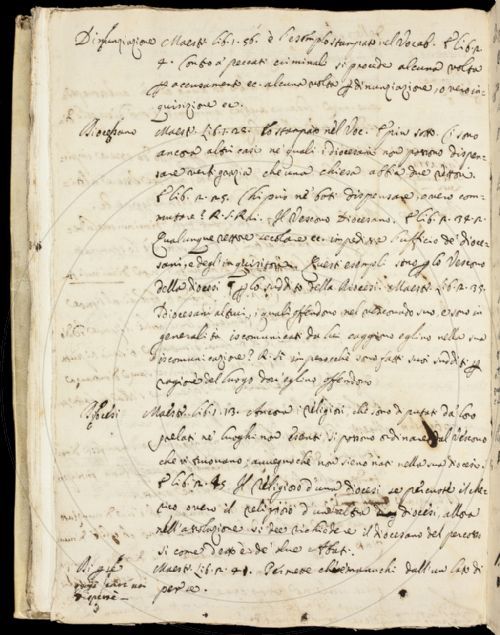 Dinunziazione Maestr. lib. 1. 56. è l'esemplo stampato nel Vocab. E lib. 2.
4. Contro a' peccati criminali si procede alcuna volta
p accusamento ec. alcuna volta p dinunziazione, o vero in-
quisizione ec.
Diocesano Maestr. lib. 1. 22. lo stampato nel Voc. E piu sotto Ci sono
ancora altri casi ne' quali i diocesani non possono dispen-
sare verbi grazia che una chiesa abbia due rettori.
E lib. 2. 25. Chi può ne' boti dispensare, overo com-
mutare? R. Si Il Vescovo Diocesano. E lib. 2. 34. 2.
Qualunque rettore secolare ec. impedire l'ufficio de' dioce-
sani, e degli inquisitori. Questi esempli sono p lo Vescovo
della diocesi p lo suddito della Diocesi. Maestr. lib. 2. 35.
I diocesani altrui, i quali offendono nel vescovado suo, e sono in
generalità iscomunicati da lui caggiono eglino nella sua
iscomunicazione? R. Si imperocchè sono fatti suoi sudditi p
ragione del luogo dov'eglino offendono
Diocesi Maestr. lib. 1. 13. Ancora i religiosi, che sono diputati da' loro
prelati ne' luoghi non esenti, si possono ordinare dal Vescovo
che vi truovano; avvegna che non sieno nati nella sua diocesi.
E lib. 2. 45. Il religioso d'una diocesi se percuote il che-
rico overo il religioso d'un'altra diocesi, allora
nell'assoluzione si dee richiedere il diocesano del percosso
si come detto è de' due Abati.
Di p sè Maestr. lib. 2. 41. Permette che manuchi dall'un lato di
per se.